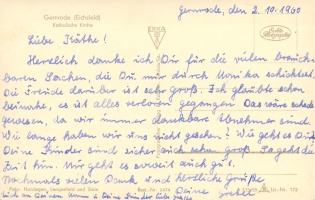 Gernrode (Eichsfeld)
Katholische Kirche
Gernrode, den 2.10.1960
Liebe Käthe!
Herzlich danke ich Dir für die vielen brauch-
baren Sachen, die Du mir durch Monika schicktest.
Die Freude darüber ist sehr groß. Ich glaubte schon
beinahe, es ist alles verloren gegangen. Das wäre schade
gewesen, da wir immer dankbare Abnehmer sind.
Wie lange haben wir uns nicht gesehen? Wie geht es Dir?
Deine Kinder sind sicher auch schon groß. So geht die
Zeit hin. Mir geht es soweit auch gut.
Nochmals vielen Dank und herzliche Grüße
Deine
Best.-Nr.